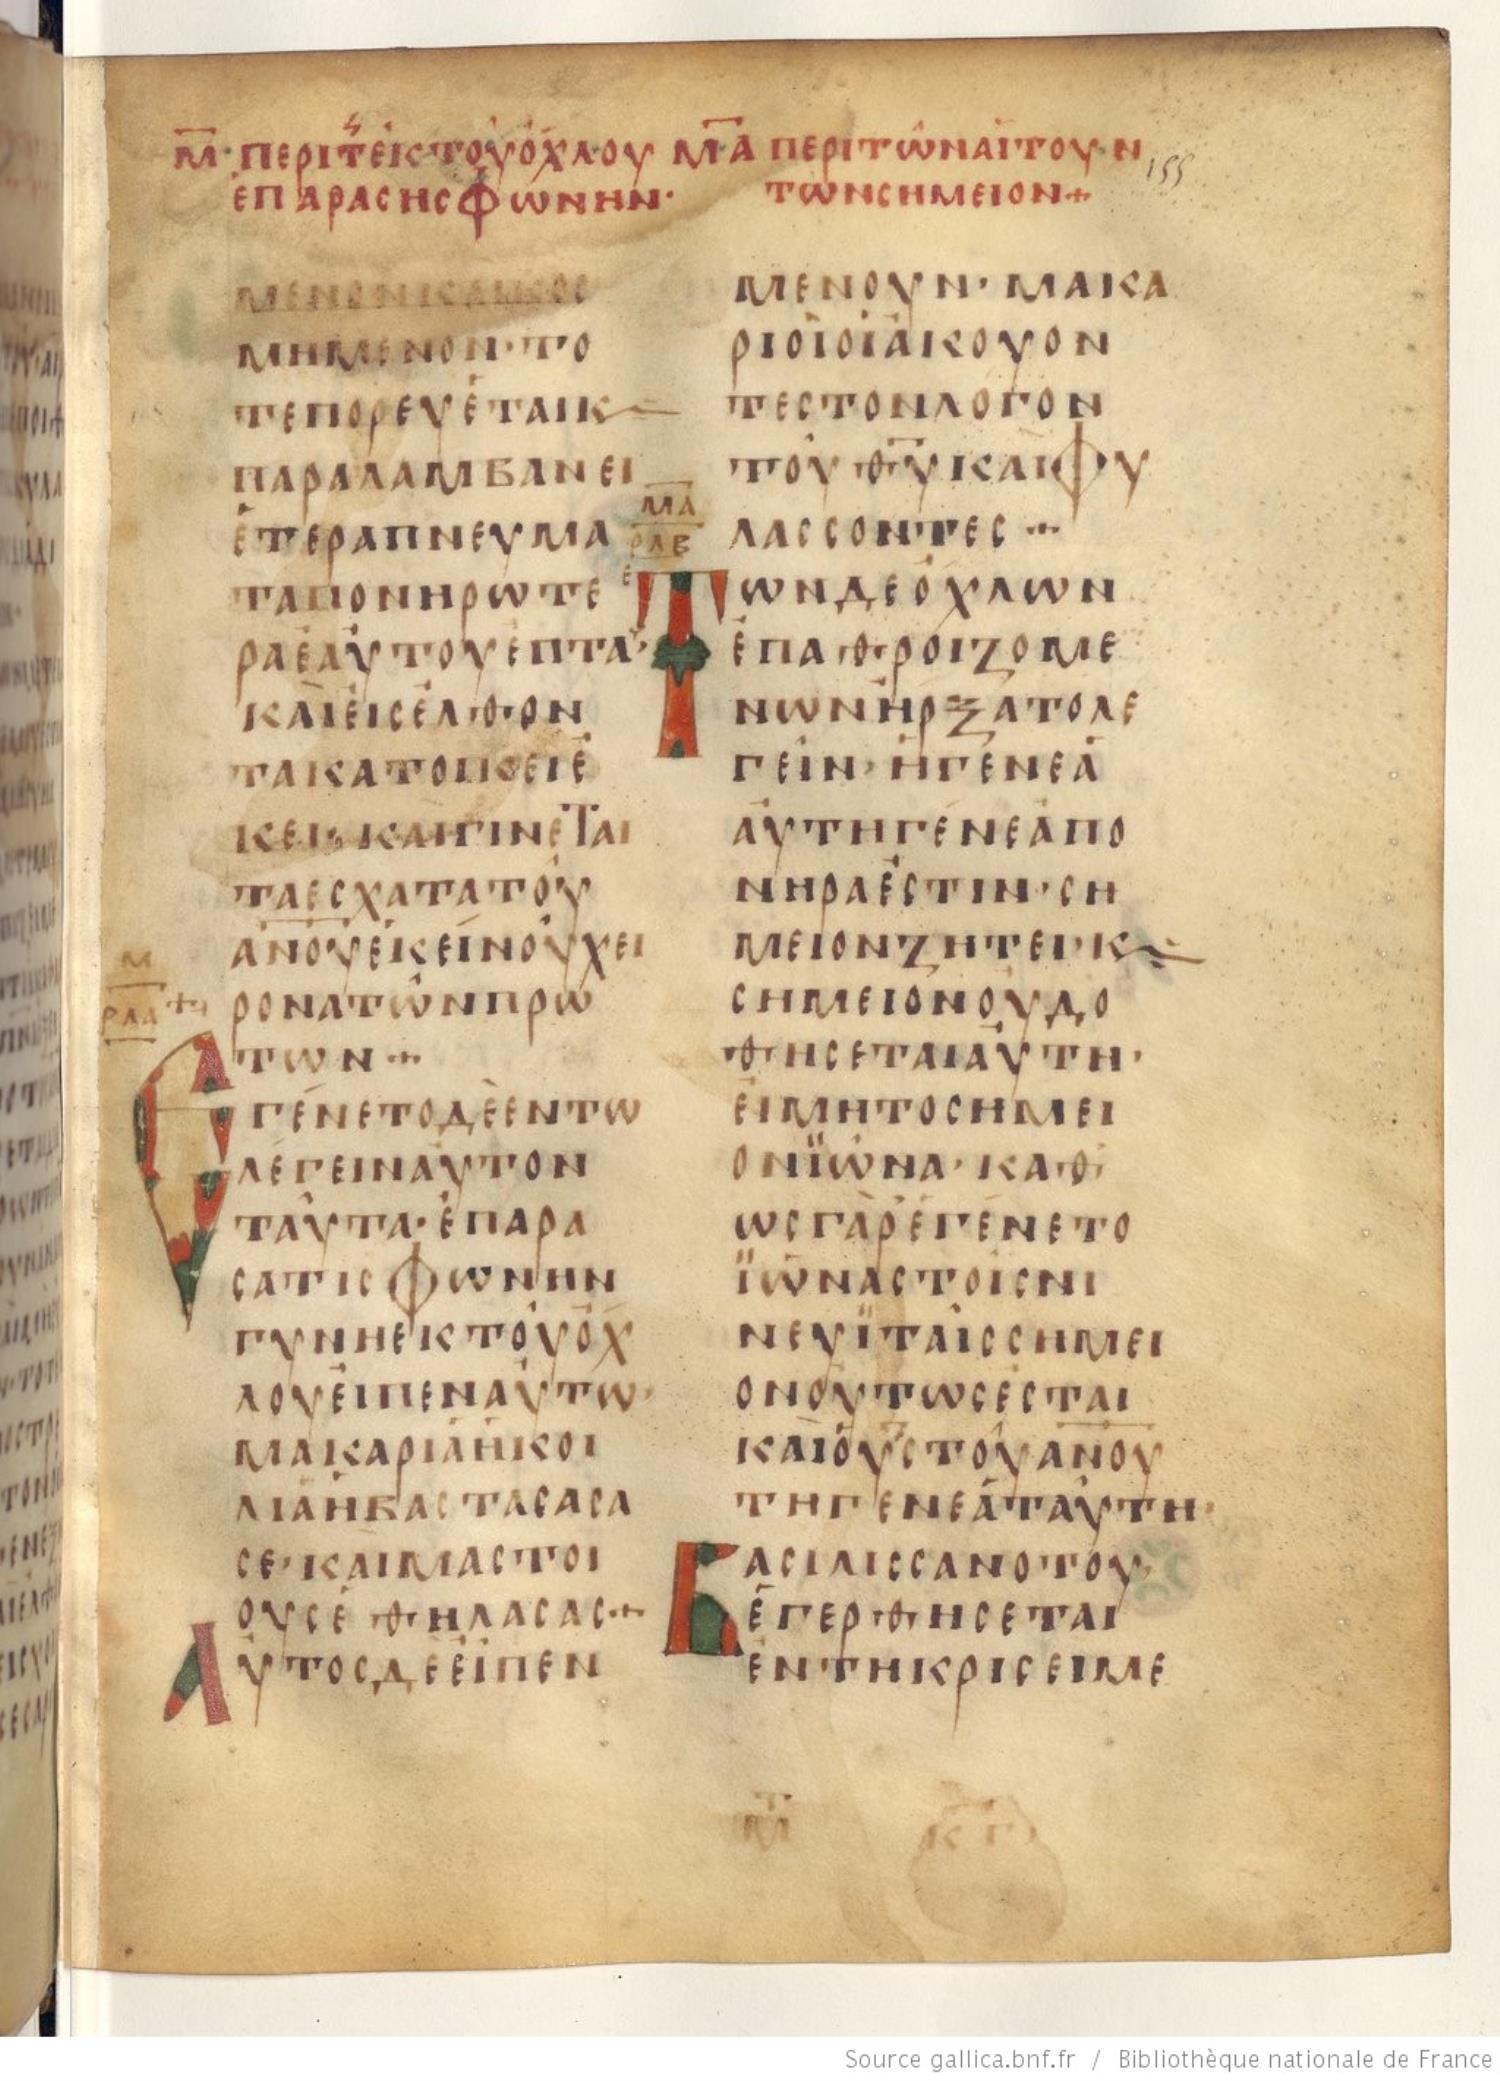 Μ ΠΕΡΙ ΤΗС ΕΚ ΤΟΥ ΟΧΛΟΥ
ΕΠΑΡΑСΗС ΦΩΝΗΝ·
ΜΑ ΠΕΡΙ ΤΩΝ ΑΙΤΟΥΝ
ΤΩΝ СΗΜΕΙΟΝ+
155
ΜΗΜΕΝΟΝ· ΤΟ
ΤΕ ΠΟΡΕΥΕΤΑΙ Κ
ΠΑΡΑΛΑΜΒΑΝΕΙ
ΕΤΕΡΑ ΠΝΕΥΜΑ
ΤΑ ΠΟΝΗΡΩΤΕ
ΡΑ ΕΑΥΤΟΥ ΕΠΤΑ·
ΚΑΙ ΕΙСΕΛΘΟΝ
ΤΑ ΚΑΤΟΙΚΕΙ Ε
ΚΕΙ· ΚΑΙ ΓΙΝΕΤΑΙ
ΤΑ ΕСΧΑΤΑ ΤΟΥ
ΑΝΟΥ ΕΚΕΙΝΟΥ ΧΕΙ
ΡΟΝΑ ΤΩΝ ΠΡΩ
ΤΩΝ+
Μ
ΡΛΑ
ΕΓΕΝΕΤΟ ΔΕ ΕΝ ΤΩ
ΛΕΓΕΙΝ ΑΥΤΟΝ
ΤΑΥΤΑ· ΕΠΑΡΑ
СΑ ΤΙС ΦΩΝΗΝ
ΓΥΝΗ ΕΚ ΤΟΥ ΟΧ
ΛΟΥ ΕΙΠΕΝ ΑΥΤΩ·
ΜΑΚΑΡΙΑ Η ΚΟΙ
ΛΙΑ Η ΒΑСΤΑСΑСΑ
СΕ· ΚΑΙ ΜΑСΤΟΙ
ΟΥС ΕΘΗΛΑСΑС+
ΑΥΤΟС ΔΕ ΕΙΠΕΝ
ΜΕΝΟΥΝ· ΜΑΚΑ
ΡΙΟΙ ΟΙ ΑΚΟΥΟΝ
ΤΕС ΤΟΝ ΛΟΓΟΝ
ΤΟΥ ΘΥ ΚΑΙ ΦΥ
ΛΑССΟΝΤΕС+
ΜΑ
ΡΛΒ
Ε
ΤΩΝ ΔΕ ΟΧΛΩΝ
ΕΠΑΘΡΟΙΖΟΜΕ
ΝΩΝ ΗΡΞΑΤΟ ΛΕ
ΓΕΙΝ· Η ΓΕΝΕΑ
ΑΥΤΗ ΓΕΝΕΑ ΠΟ
ΝΗΡΑ ΕСΤΙΝ· СΗ
ΜΕΙΟΝ ΖΗΤΕΙ· Κ
СΗΜΕΙΟΝ ΟΥ ΔΟ
ΘΗСΕΤΑΙ ΑΥΤΗ·
ΕΙ ΜΗ ΤΟ СΗΜΕΙ
ΟΝ ΪΩΝΑ· ΚΑΘ
ΩС ΓΑΡ ΕΓΕΝΕΤΟ
ΪΩΝΑС ΤΟΙС ΝΙ
ΝΕΥΪΤΑΙС СΗΜΕΙ
ΟΝ ΟΥΤΩС ΕСΤΑΙ
ΚΑΙ Ο ΥС ΤΟΥ ΑΝΟΥ
ΤΗ ΓΕΝΕΑ ΤΑΥΤΗ·
ΒΑСΙΛΙССΑ ΝΟΤΟΥ
ΕΓΕΡΘΗСΕΤΑΙ
ΕΝ ΤΗ ΚΡΙСΕΙ ΜΕ